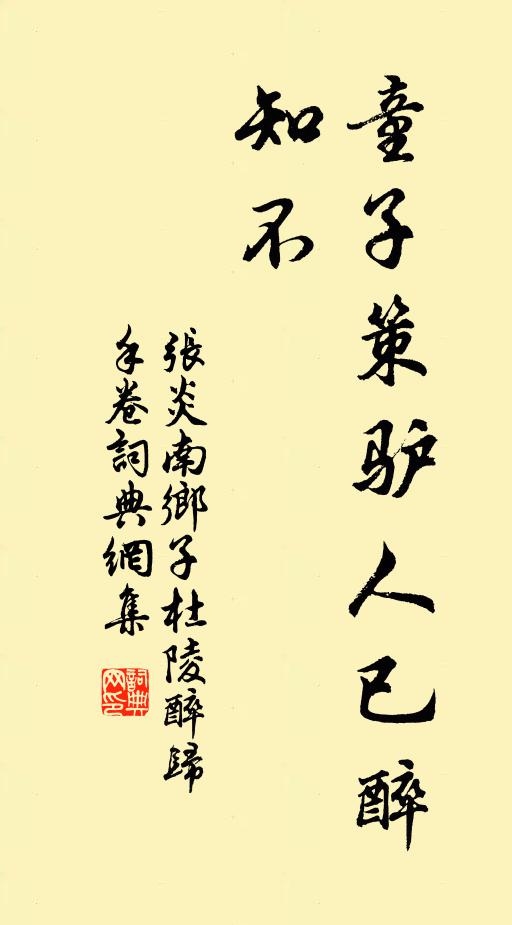 童子策驴人已醉
知不
張炎南鄉子杜陵醉歸
手卷詞典網集
詞典
网印